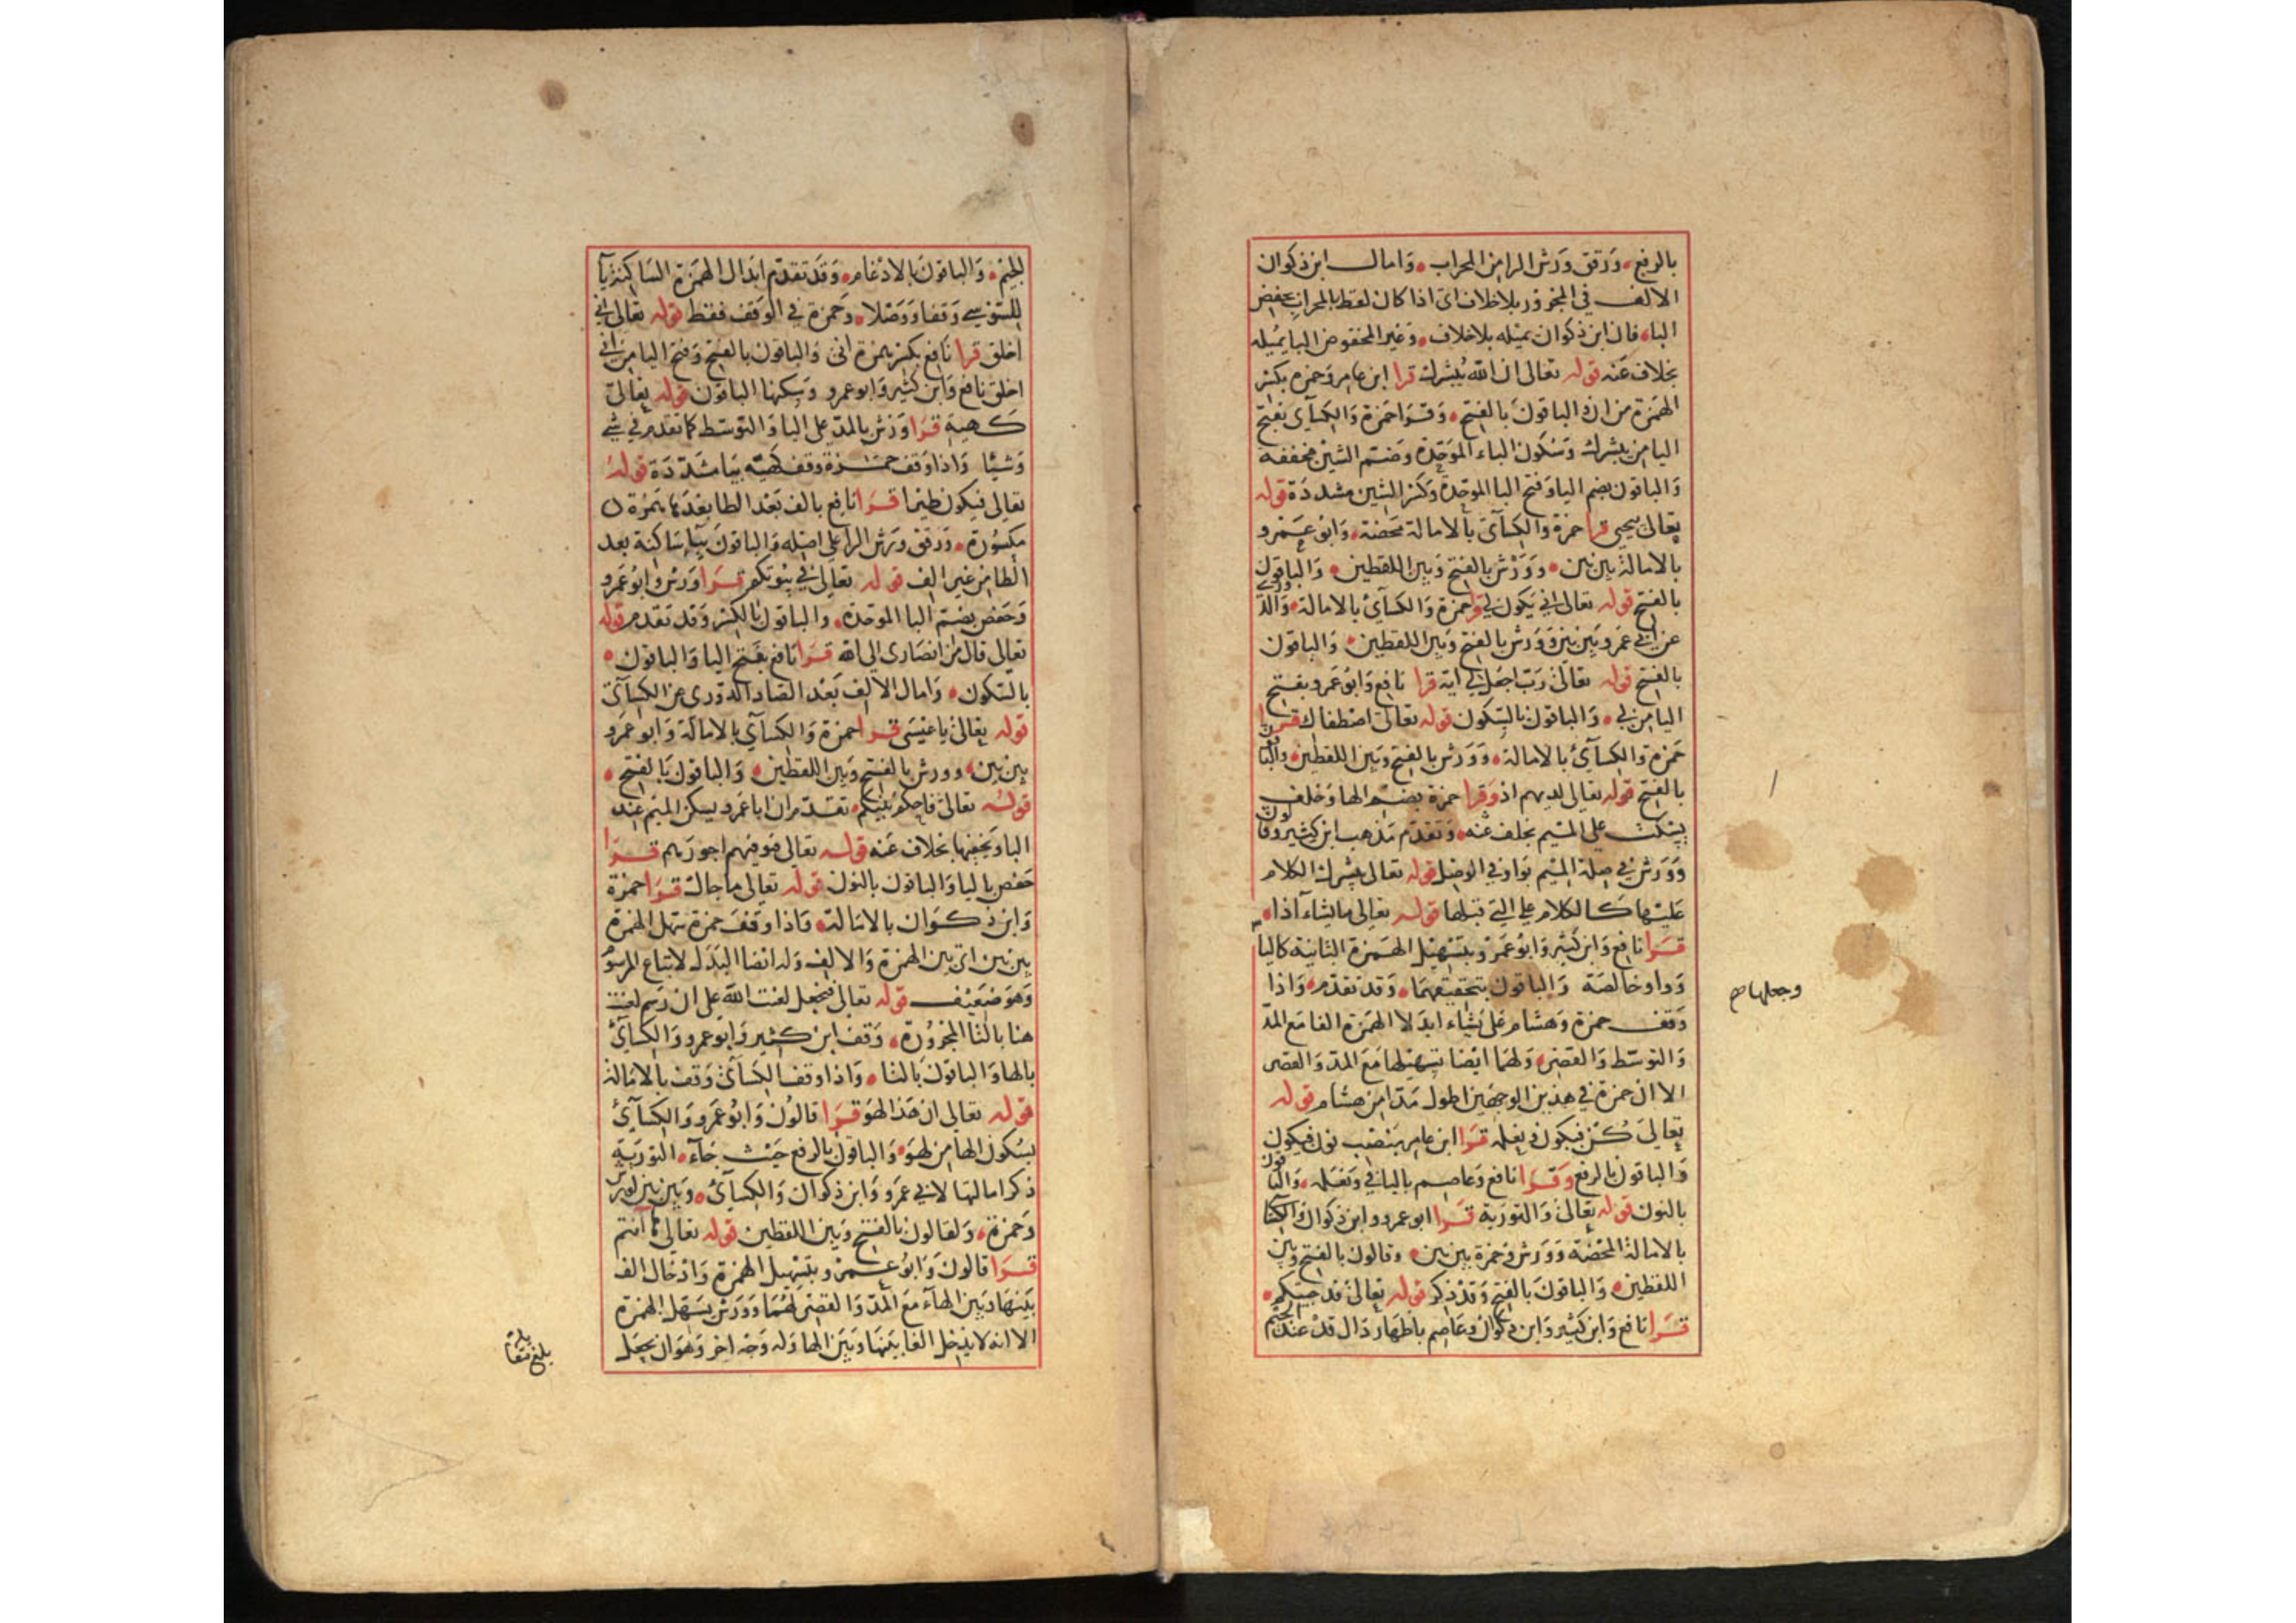 بالرفع ورقق ورش الرا من المحراب وامال ابن ذكوان
الالف في المجرور بلا خلاف اي اذا كان لفظ المحراب بخفض
البا فان ابن ذكوان يميله بلا خلاف وغير المخفوض البا يميله
بخلاف عنه قوله تعالى ان الله يبشرك قرا ابن عامر وحمزه بكسر
الهمزة من ان والباقون بالفتح وقرا حمزة والكسآى بفتح
اليا من يبشرك وسكون الباء الموحدة وضم الشين مخففة
والباقون بضم اليا وفتح البا الموحدة وكسر الشين مشددة قوله
تعالى بيحيى قرا حمزة والكسآى بالامالة محضة وابو عمرو
بالامالة بين بين وورش بالفتح وبين اللفظين والباقون
بالفتح قوله تعالى انى يكون لي قرا حمزة والكسآى بالامالة والدوري
عن ابي عمرو بين بين وورش بالفتح وبين اللفظين والباقون
بالفتح قوله تعالى رب اجعل لي اية قرا نافع وابو عمرو بفتح
اليا من لي والباقون بالسكون قوله تعالى اصطفاك قرا
حمزة والكسآى بالامالة وورش بالفتح وبين اللفظين والباقون
بالفتح قوله تعالى لديهم اذ وقرا حمزة بضم الها وخلف
يسكت على الميم بخلف عنه وتقدم مذهب ابن كثير وقالون
وورش في صلة الميم بواو في الوصل قوله تعالى يبشرك الكلام
عليها كالكلام على التي قبلها قوله تعالى ما يشاء اذا
قرا نافع وابن كثير وابو عمرو بتسهيل الهمزة الثانية كاليا
وواو خالصة والباقون بتحقيقهما وقد تقدم واذا
وجعلها صح
وقف حمزة وهشام على يشاء ابدلا الهمزة الفا مع المد
والتوسط والقصر ولهما ايضا تسهيلها مع المد والقصر
الا ان حمزة في هذين الوجهين اطول مدا من هشام قوله
تعالى كن فيكون ونعلمه قرا ابن عامر بنصب نون فيكون
والباقون بالرفع وقرا نافع وعاصم باليا في ونعلمه والباقون
بالنون قوله تعالى والتورية قرا ابو عمرو وابن ذكوان والكسآ
بالامالة المحضة وورش وحمزة بين بين وقالون بالفتح وبين
اللفظين والباقون بالفتح وقد ذكر قوله تعالى قد جيتكم
قرا نافع وابن كثير وابن ذكوان وعاصم باظهار دال قد عند الجيم
للجيم والباقون بالادغام وقد تقدم ابدال الهمزة الساكنة يآ
للسوسي وقفا ووصلا وحمزة في الوقف فقط قوله تعالى اني
اخلق قرا نافع بكسر همزة انى والباقون بالفتح وفتح اليا من اني
اخلق نافع وابن كثير وابو عمرو وسكنها الباقون قوله تعالى
كهية قرا ورش بالمد على اليا والتوسط كما تقدم في شي
وشيئا واذا وقف حمزة وقف كهيه بيا مشددة قوله
تعالى فيكون طيرا قرا نافع بالف بعد الطا بعدها همزة
مكسورة ورقق ورش الرا على اصله والباقون بيا ساكنة بعد
الطا من غير الف قوله تعالى في بيوتكم قرا ورش وابو عمرو
وحفص بضم البا الموحدة والباقون بالكسر وقد تقدم قوله
تعالى قال من انصارى الى الله قرا نافع بفتح اليا والباقون
بالسكون وامال الالف بعد الصاد الدوري عن الكسآى
قوله تعالى يا عيسى قرا حمزة والكسآي بالامالة وابو عمرو
بين بين وورش بالفتح وبين اللفظين والباقون بالفتح
قوله تعالى فاحكم بينكم تقدم ان ابا عمرو يسكن الميم عند
البا ويخفيها بخلاف عنه قوله تعالى فنوفيهم اجورهم قرا
حفص باليا والباقون بالنون قوله تعالى ما جاك قرا حمزة
وابن ذكوان بالامالة واذا وقف حمزة سهل الهمزة
بين بين اي بين الهمزة والالف وله ايضا البدل لاتباع المرسوم
وهو ضعيف قوله تعالى فنجعل لعنت الله على ان رسم لعنت
هنا بالتا المجرورة وقف ابن كثير وابو عمرو والكسآئ
بالها والباقون بالتا واذا وقف الكسآئ وقف بالامالة
قوله تعالى ان هذا لهو قرا قالون وابو عمرو والكسآئ
بسكون الها من لهو والباقون بالرفع حيث جآء التورية
ذكر امالتها لابي عمرو وابن ذكوان والكسآئ وبين بين لورش
وحمزة ولقالون بالفتح وبين اللفظين قوله تعالى ها انتم
قرا قالون وابو عمرو بتسهيل الهمزة وادخال الف
بينها وبين الهآء مع المد والقصر لهما وورش يسهل الهمزة
الا انه لا يدخل الفا بينها وبين الها وله وجه اخر وهو ان يجعل
بلغ مقابلة